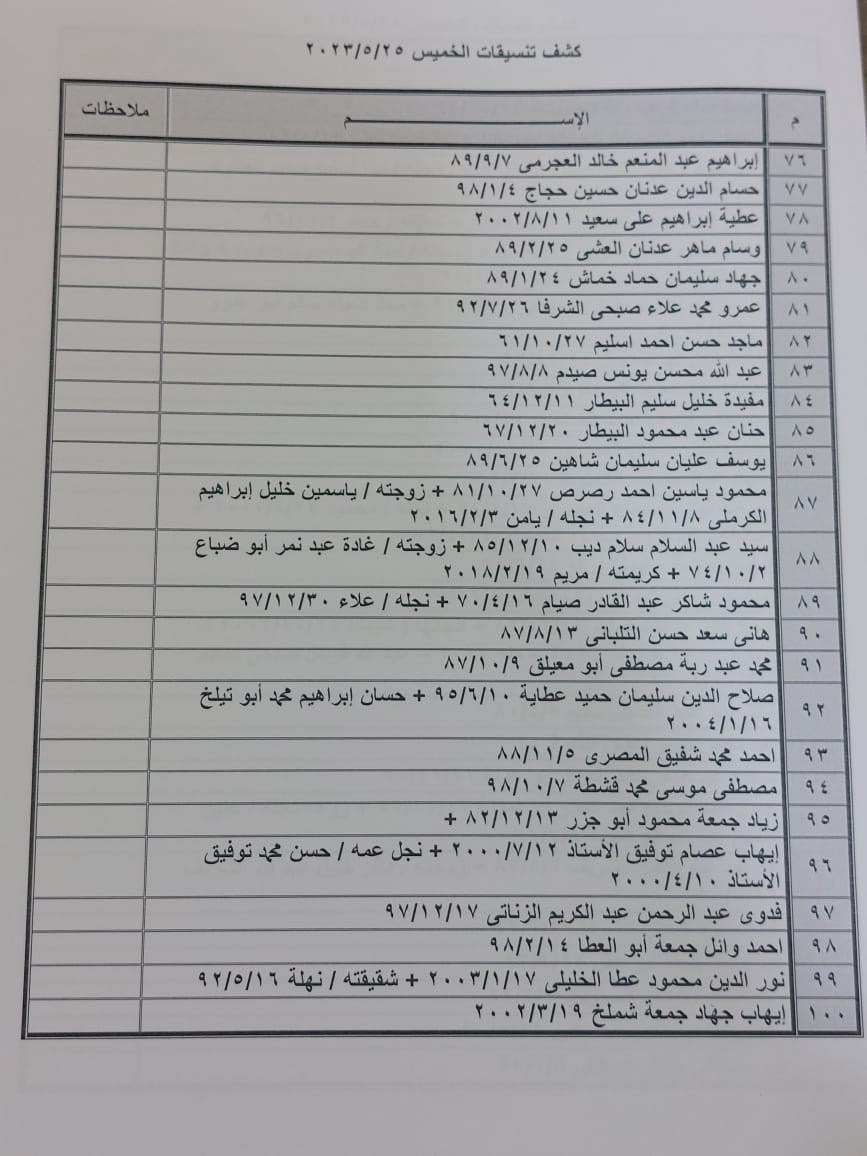 كشف تنسيقات الخميس ٢٠٢٣/٥/٢٥
م الإســـــــــــــــــــــــم ملاحظات
٧٦ إبراهيم عبد المنعم خالد العجرمى ٨٩/٩/٧
٧٧ حسام الدين عدنان حسين حجاج ٩٨/١/٤
٧٨ عطية إبراهيم على سعيد ٢٠٠٢/٨/١١
٧٩ وسام ماهر عدنان العشى ٨٩/٢/٢٥
٨٠ جهاد سليمان حماد خماش ٨٩/١/٢٤
٨١ عمرو محمد علاء صبحى الشرفا ٩٢/٧/٢٦
٨٢ ماجد حسن احمد اسليم ٦١/١٠/٢٧
٨٣ عبد الله محسن يونس صيدم ٩٧/٨/٨
٨٤ مفيدة خليل سليم البيطار ٦٤/١٢/١١
٨٥ حنان عبد محمود البيطار ٦٧/١٢/٢٠
٨٦ يوسف عليان سليمان شاهين ٨٩/٦/٢٥
٨٧ محمود ياسين احمد رصرص ٨١/١٠/٢٧ + زوجته / ياسمين خليل إبراهيم
الكرملى ٨٤/١١/٨ + نجله / يامن ٢٠١٦/٢/٣
٨٨ سيد عبد السلام سلام ديب ٨٥/١٢/١٠ + زوجته / غادة عبد نمر أبو ضباع
٧٤/١٠/٢ + كريمته / مريم ٢٠١٨/٢/١٩
٨٩ محمود شاكر عبد القادر صيام ٧٠/٤/١٦ + نجله / علاء ٩٧/١٢/٣٠
٩٠ هانى سعد حسن التلبانى ٨٧/٨/١٣
٩١ محمد عبد ربة مصطفى أبو معيلق ٨٧/١٠/٩
٩٢ صلاح الدين سليمان حميد عطاية ٩٥/٦/١٠ + حسان إبراهيم محمد أبو تيلخ
٢٠٠٤/١/١٦
٩٣ احمد محمد شفيق المصرى ٨٨/١١/٥
٩٤ مصطفى موسى محمد قشطة ٩٨/١٠/٧
٩٥ زياد جمعة محمود أبو جزر ٨٢/١٢/١٣ +
٩٦ إيهاب عصام توفيق الأستاذ ٢٠٠٠/٧/١٢ + نجل عمه / حسن محمد توفيق
الأستاذ ٢٠٠٠/٤/١٠
٩٧ فدوى عبد الرحمن عبد الكريم الزناتى ٩٧/١٢/١٧
٩٨ احمد وائل جمعة أبو العطا ٩٨/٢/١٤
٩٩ نور الدين محمود عطا الخليلى ٢٠٠٣/١/١٧ + شقيقته / نهلة ٩٢/٥/١٦
١٠٠ إيهاب جهاد جمعة شملخ ٢٠٠٢/٣/١٩